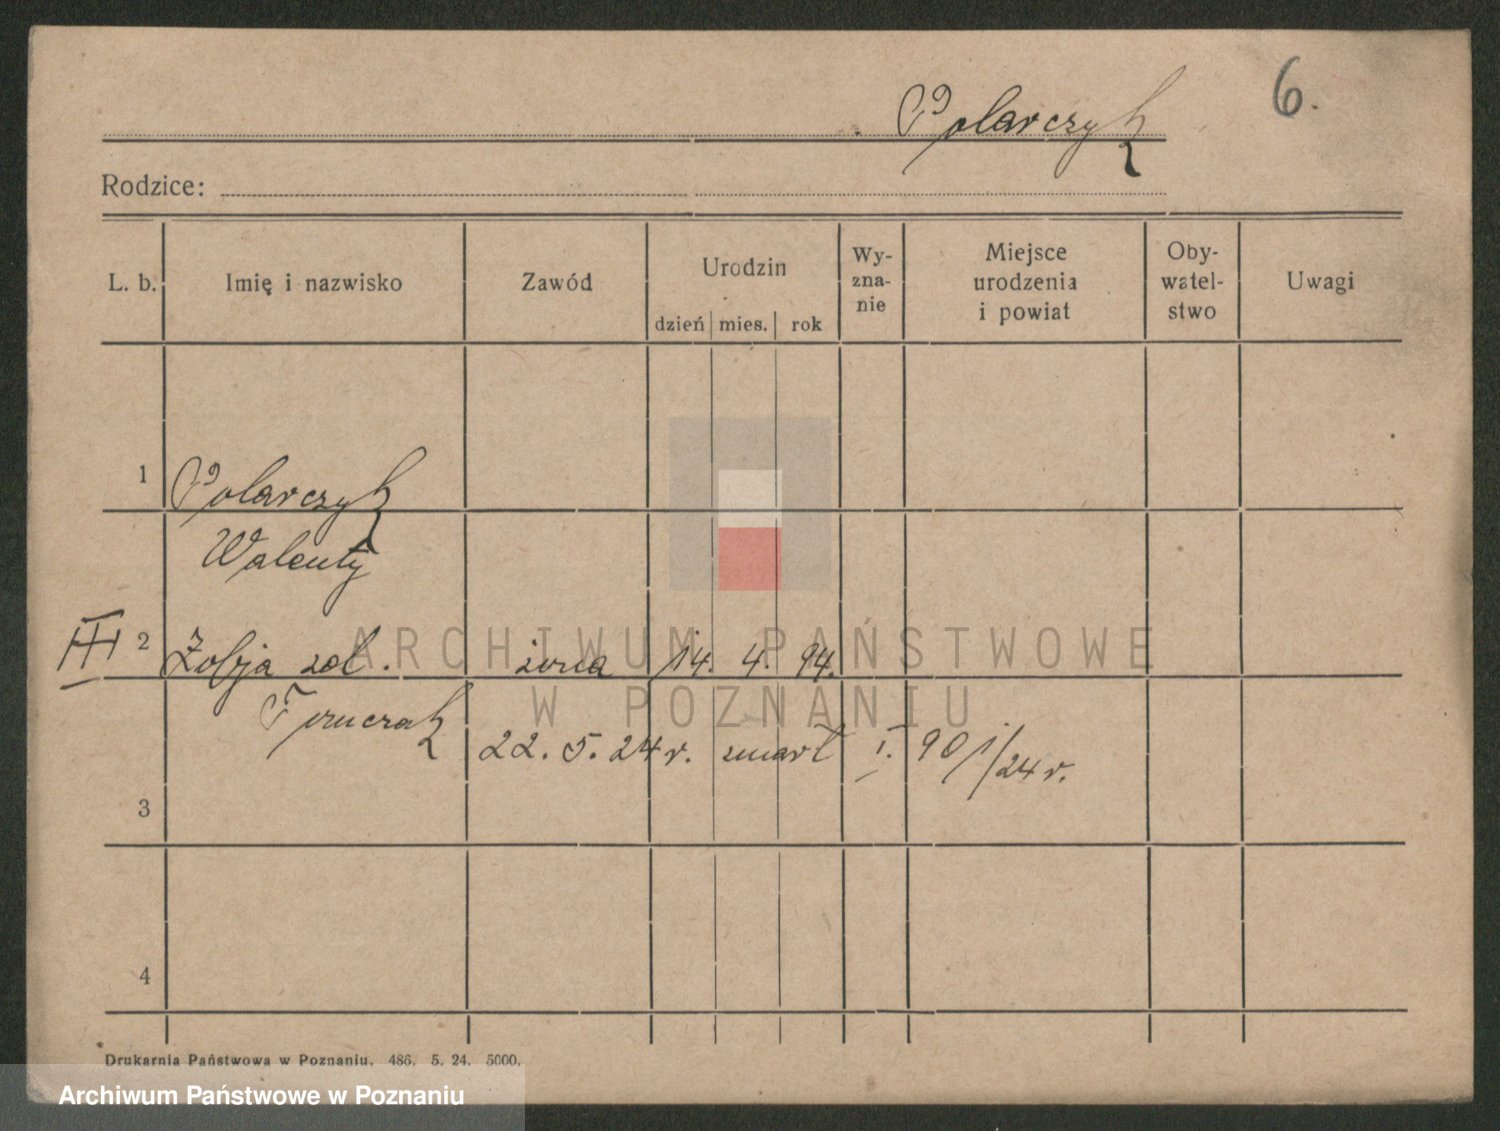 6.
Polarczyk
Rodzice:
L. b. Imię i nazwisko Zawód Urodzin dzień mies. rok Wy-zna-nie Miejsce urodzenia i powiat Oby-watel-stwo Uwagi
1 Polarczyk
Walenty
III 2 żona 14. 4. 94.
22. 5. 24 r. zmarł I. 901/24 r.
3
4
ARCHIWUM PAŃSTWOWE
W POZNANIU
Drukarnia Państwowa w Poznaniu. 486. 5. 24. 5000.
Archiwum Państwowe w Poznaniu